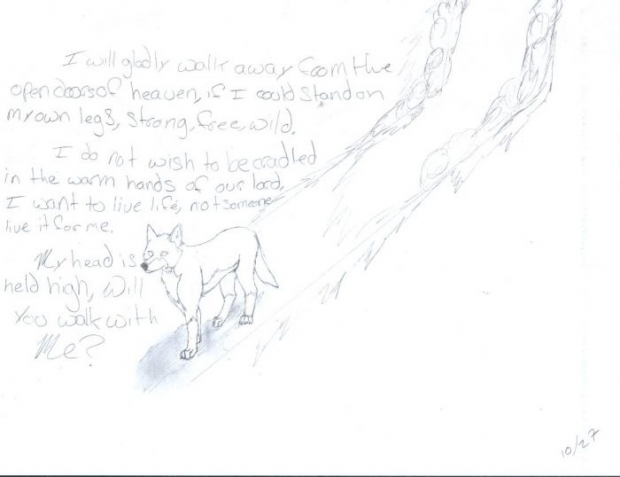 I will gladly walk away from the
open doors of heaven, if I could stand on
my own legs, strong, free, wild.
I do not wish to be cradled
in the warm hands of our lord,
I want to live life, not someone
live it for me.
My head is
held high, will
you walk with
Me?
10/27